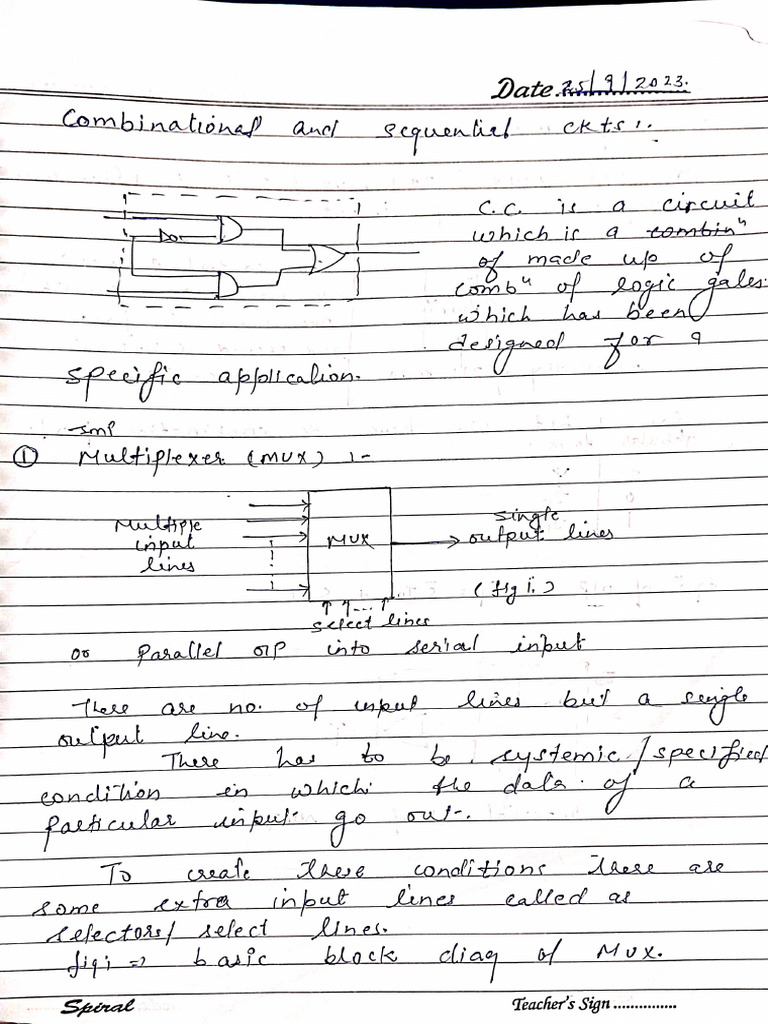 Date 25/9/2023.
Combinational and sequential ckts:.
C.C. is a circuit
which is a combinⁿ
of made up of
combⁿ of logic gates.
which has been
designed for a
specific application.
Imp
① Multiplexer (MUX) :-
Multiple
input
lines
MUX
single
output lines
(fig i.)
select lines
or Parallel o/p into serial input
There are no. of input lines but a single
output line.
There has to be systemic/specified
condition in which the data of a
particular input go out.
To create these conditions there are
some extra input lines called as
selectors/ select lines.
fig i => basic block diag of MUX.
Spiral
Teacher's Sign ...............